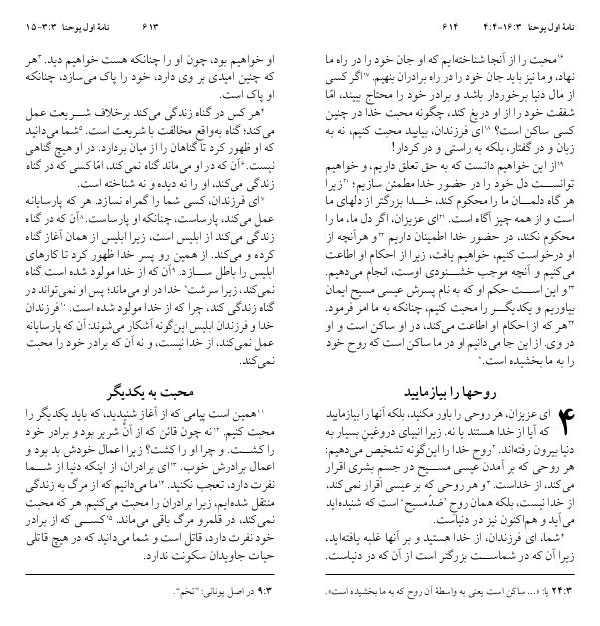 نامهٔ اول یوحنا ۳:۳-۱۵ ۶۱۳
او خواهیم بود، چون او را چنانکه هست خواهیم دید. ۳هر
که چنین امیدی بر وی دارد، خود را پاک می‌سازد، چنانکه
او پاک است.
۴هر کس در گناه زندگی می‌کند برخلاف شریعت عمل
می‌کند؛ گناه به‌واقع مخالفت با شریعت است. ۵شما می‌دانید
که او ظهور کرد تا گناهان را از میان بردارد. در او هیچ گناهی
نیست. ۶آن که در او می‌ماند گناه نمی‌کند، امّا کسی که در گناه
زندگی می‌کند، او را نه دیده و نه شناخته است.
۷ای فرزندان، کسی شما را گمراه نسازد. هر که پارسایانه
عمل می‌کند، پارساست، چنانکه او پارساست. ۸آن که در گناه
زندگی می‌کند از ابلیس است، زیرا ابلیس از همان آغاز گناه
کرده و می‌کند. از همین رو پسر خدا ظهور کرد تا کارهای
ابلیس را باطل سازد. ۹آن که از خدا مولود شده است گناه
نمی‌کند، زیرا سرشت* خدا در او می‌ماند؛ پس او نمی‌تواند در
گناه زندگی کند، چرا که از خدا مولود شده است. ۱۰فرزندان
خدا و فرزندان ابلیس این‌گونه آشکار می‌شوند: آن که پارسایانه
عمل نمی‌کند، از خدا نیست، و نه آن که برادر خود را محبت
نمی‌کند.
محبت به یکدیگر
۱۱همین است پیامی که از آغاز شنیدید، که باید یکدیگر را
محبت کنیم. ۱۲نه چون قائن که از آن شریر بود و برادر خود
را کشت. و چرا او را کشت؟ زیرا اعمال خودش بد بود و
اعمال برادرش خوب. ۱۳ای برادران، از اینکه دنیا از شما
نفرت دارد، تعجب نکنید. ۱۴ما می‌دانیم که از مرگ به زندگی
منتقل شده‌ایم، زیرا برادران را محبت می‌کنیم. هر که محبت
نمی‌کند، در قلمرو مرگ باقی می‌ماند. ۱۵کسی که از برادر
خود نفرت دارد، قاتل است و شما می‌دانید که در هیچ قاتلی
حیات جاویدان سکونت ندارد.
۹:۳ در اصل یونانی: "تخم".
نامهٔ اول یوحنا ۱۶:۳-۴:۴ ۶۱۴
۱۶محبت را از آنجا شناخته‌ایم که او جان خود را در راه ما
نهاد، و ما نیز باید جان خود را در راه برادران بنهیم. ۱۷اگر کسی
از مال دنیا برخوردار باشد و برادر خود را محتاج ببیند، امّا
شفقت خود را از او دریغ کند، چگونه محبت خدا در چنین
کسی ساکن است؟ ۱۸ای فرزندان، بیایید محبت کنیم، نه به
زبان و در گفتار، بلکه به راستی و در کردار!
۱۹از این خواهیم دانست که به حق تعلق داریم، و خواهیم
توانست دل خود را در حضور خدا مطمئن سازیم؛ ۲۰زیرا
هر گاه دلمان ما را محکوم کند، خدا بزرگتر از دلهای ما
است و از همه چیز آگاه است. ۲۱ای عزیزان، اگر دل ما، ما را
محکوم نکند، در حضور خدا اطمینان داریم ۲۲و هرآنچه از
او درخواست کنیم، خواهیم یافت، زیرا از احکام او اطاعت
می‌کنیم و آنچه موجب خشنودی اوست، انجام می‌دهیم.
۲۳و این است حکم او که به نام پسرش عیسی مسیح ایمان
بیاوریم و یکدیگر را محبت کنیم، چنانکه به ما امر فرمود.
۲۴هر که از احکام او اطاعت می‌کند، در او ساکن است و او
در وی. از این جا می‌دانیم او در ما ساکن است که روح خود
را به ما بخشیده است.*
روحها را بیازمایید
۴ ای عزیزان، هر روحی را باور مکنید، بلکه آنها را بیازمایید
که آیا از خدا هستند یا نه. زیرا انبیای دروغین بسیار به
دنیا بیرون رفته‌اند. ۲روح خدا را این‌گونه تشخیص می‌دهیم:
هر روحی که بر آمدن عیسی مسیح در جسم بشری اقرار
می‌کند، از خداست. ۳و هر روحی که بر عیسی اقرار نمی‌کند،
از خدا نیست، بلکه همان روح 'ضدّمسیح' است که شنیده‌اید
می‌آید و هم‌اکنون نیز در دنیاست.
۴شما، ای فرزندان، از خدا هستید و بر آنها غلبه یافته‌اید،
زیرا آن که در شماست بزرگتر است از آن که در دنیاست.
۲۴:۳ یا: «... ساکن است یعنی به واسطهٔ آن روح که به ما بخشیده است».